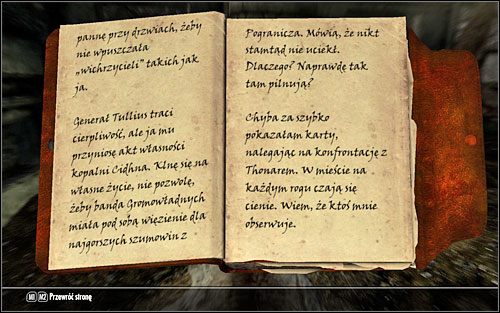 pannę przy drzwiach, żeby
nie wpuszczała
„wichrzycieli” takich jak
ja.
Generał Tullius traci
cierpliwość, ale ja mu
przyniosę akt własności
kopalni Cidhna. Klnę się na
własne życie, nie pozwolę,
żeby banda Gromowładnych
miała pod sobą więzienie dla
najgorszych szumowin z
Pogranicza. Mówią, że nikt
stamtąd nie uciekł.
Dlaczego? Naprawdę tak
tam pilnują?
Chyba za szybko
pokazałam karty,
nalegając na konfrontację z
Thonarem. W mieście na
każdym rogu czają się
cienie. Wiem, że ktoś mnie
obserwuje.
M1 M2 Przewróć stronę